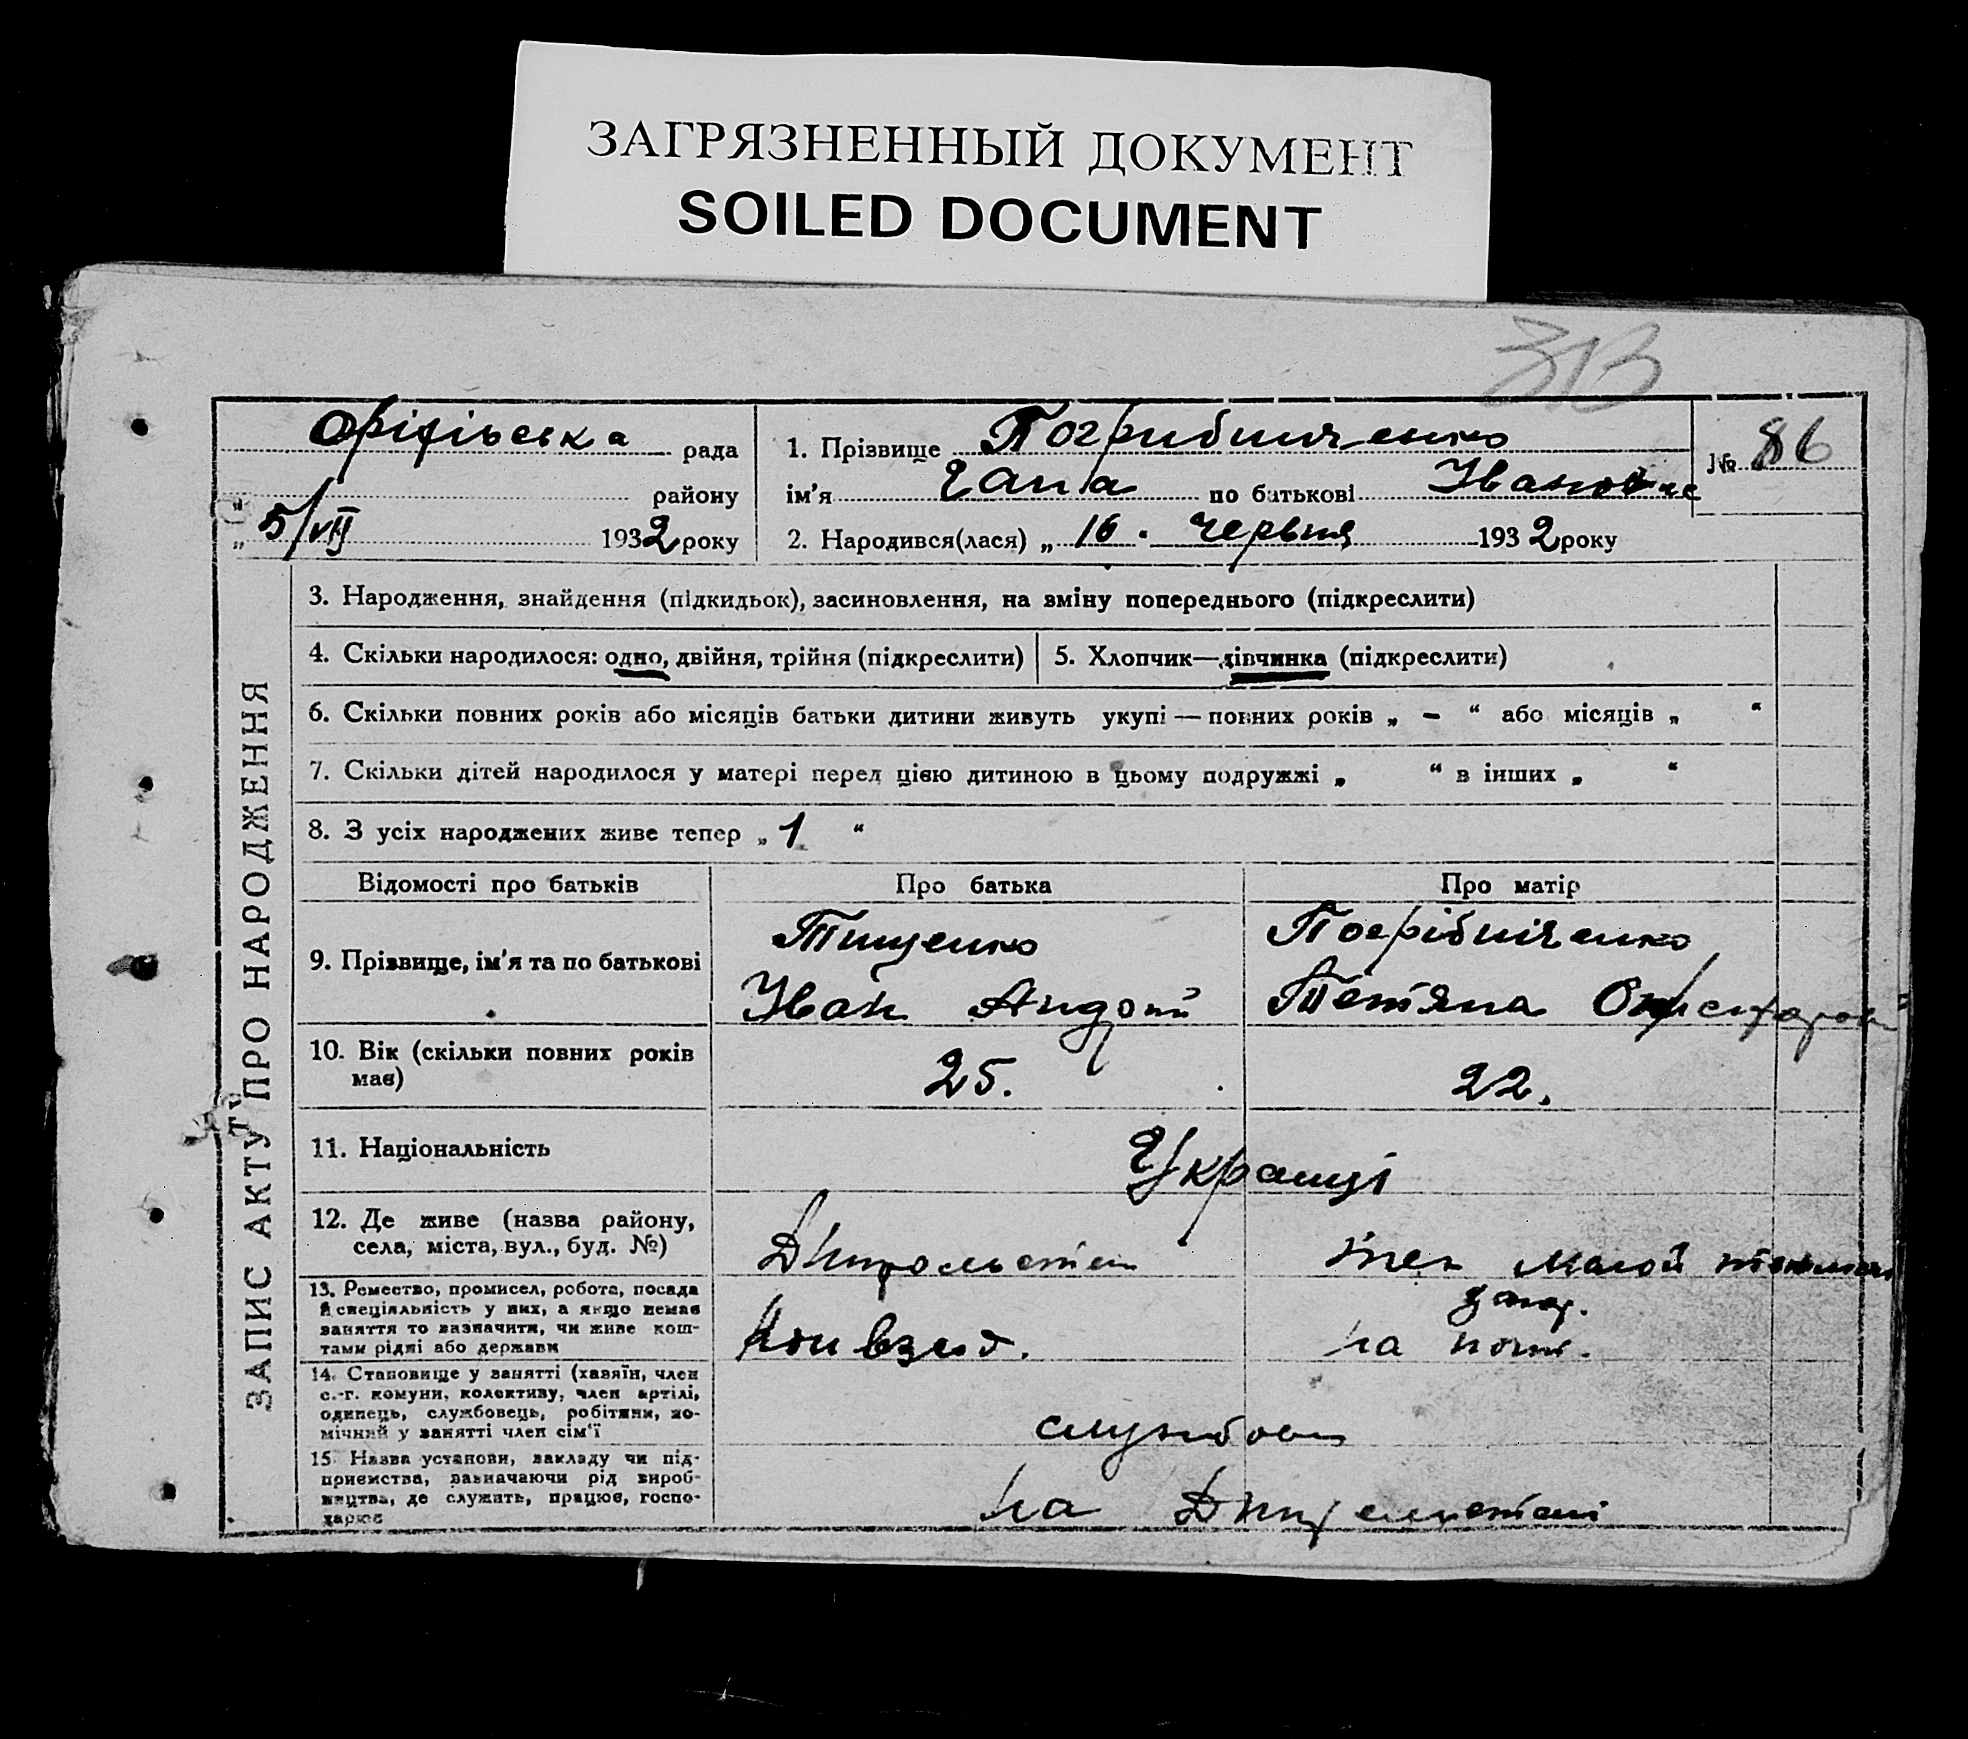 ЗАГРЯЗНЕННЫЙ ДОКУМЕНТ
SOILED DOCUMENT
313
рада
району
5/VII 1932 року
1. Прізвище Погрибниченко
ім'я Гапа по батькові Івановна
№ 86
2. Народився(лася) „16. червня 1932 року
ЗАПИС АКТУ ПРО НАРОДЖЕННЯ
3. Народження, знайдення (підкидьок), засиновлення, на зміну попереднього (підкреслити)
4. Скільки народилося: одно, двійня, трійня (підкреслити)
5. Хлопчик—дівчинка (підкреслити)
6. Скільки повних років або місяців батьки дитини живуть укупі — повних років „ – “ або місяців „ “
7. Скільки дітей народилося у матері перед цією дитиною в цьому подружжі „ “ в інших „ “
8. З усіх народжених живе тепер „ 1 “
Відомості про батьків
Про батька
Про матір
9. Прізвище, ім'я та по батькові
Тищенко
Іван
Погрібніченко
Тетяна
10. Вік (скільки повних років
має)
25.
22.
11. Національність
Українці
12. Де живе (назва району,
села, міста, вул., буд. №)
13. Ремество, промисел, робота, посада
й спеціяльність у них, а якщо немає
заняття то зазначити, чи живе кош-
тами рідні або держави
14. Становище у занятті (хазяїн, член
с.-г. комуни, колективу, член артілі,
одинець, службовець, робітник, по-
мічний у занятті член сім'ї
15. Назва установи, закладу чи під-
приємства, зазначаючи рід вироб-
ництва, де служить, працює, госпо-
дарює
на